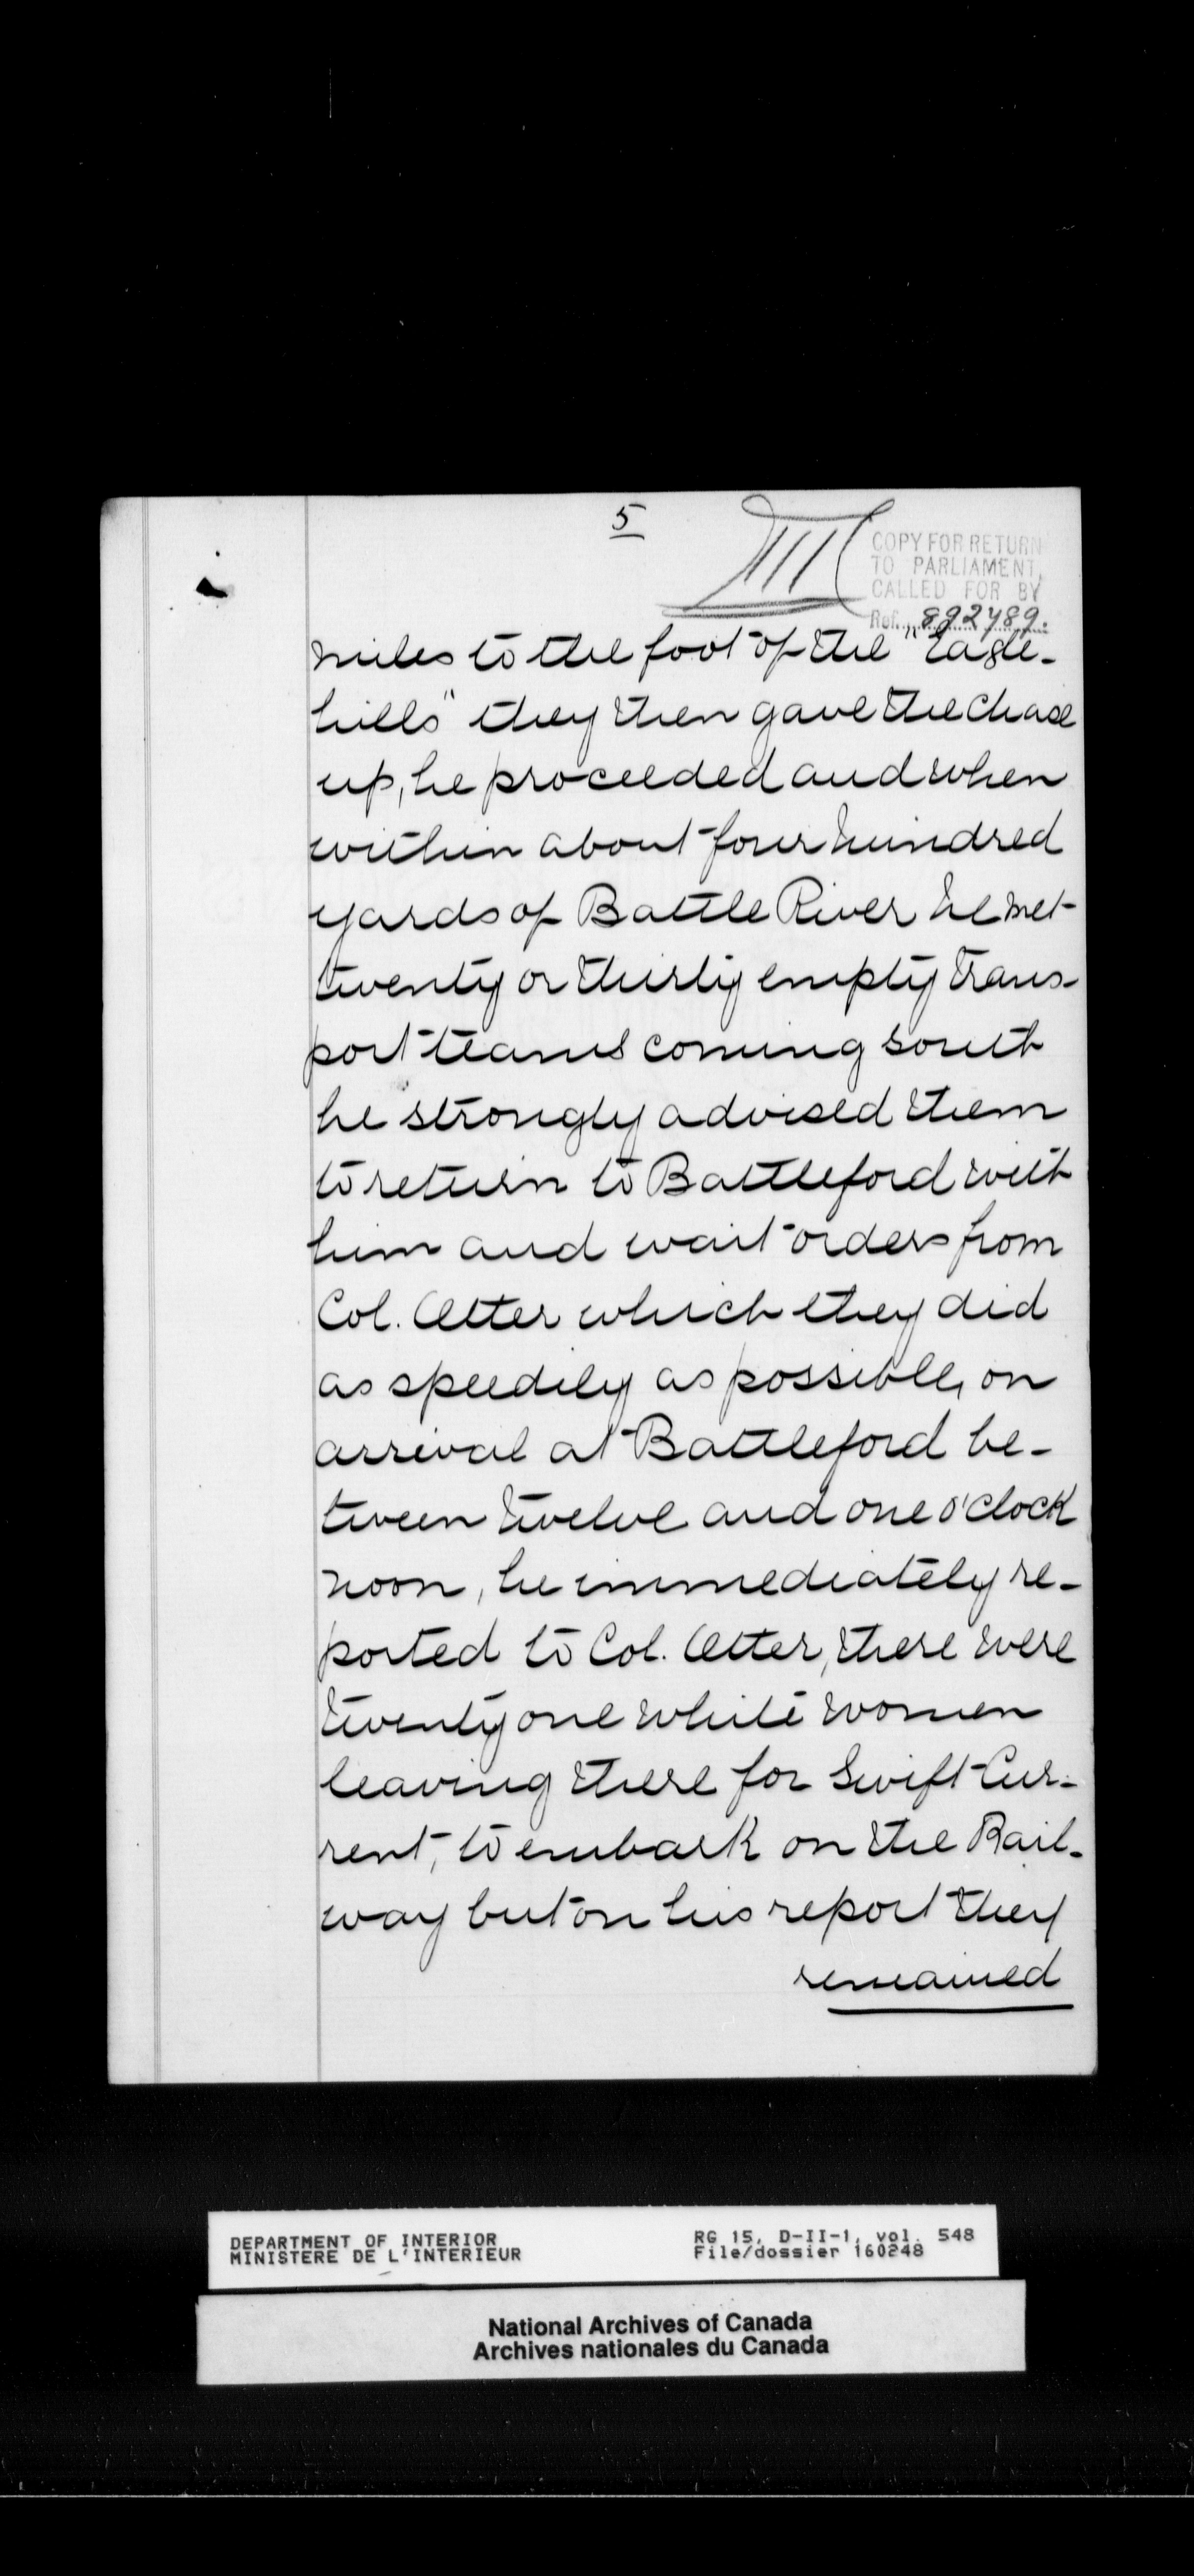 5
III
COPY FOR RETURN
TO PARLIAMENT,
CALLED FOR BY
Ref. 892789.
miles to the foot of the "Eagle-
hills" they then gave the chase
up, he proceeded and when
within about four hundred
yards of Battle River he met
twenty or thirty empty trans-
port teams coming south
he strongly advised them
to return to Battleford with
him and wait orders from
Col. Otter which they did
as speedily as possible, on
arrival at Battleford be-
tween twelve and one o'clock
noon, he immediately re-
ported to Col. Otter, there were
twenty one white women
leaving there for Swift Cur-
rent, to embark on the Rail-
way but on his report they
remained
DEPARTMENT OF INTERIOR
MINISTERE DE L'INTERIEUR
RG 15, D-II-1, vol. 548
File/dossier 160248
National Archives of Canada
Archives nationales du Canada